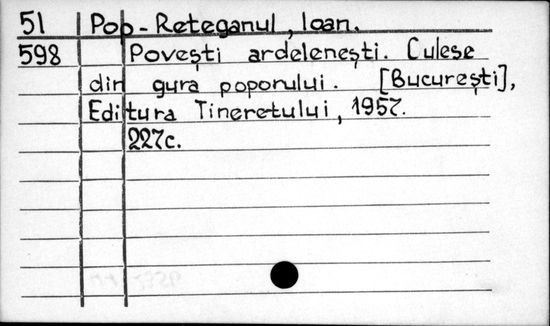 51 Pop-Reteganul, Ioan.
598 Povești ardelenești. Culese
din gura poporului. [București],
Editura Tineretului, 1957.
227c.